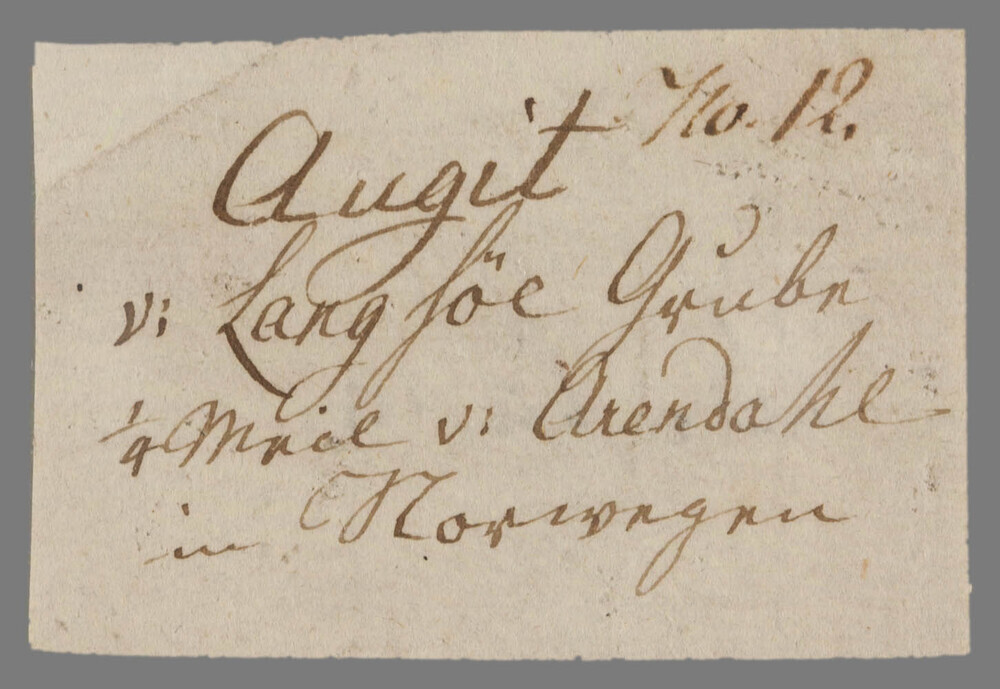 No. 12.
Augit
v: Langsöe Grube
1/4 Meile v: Arendahl
in Norwegen